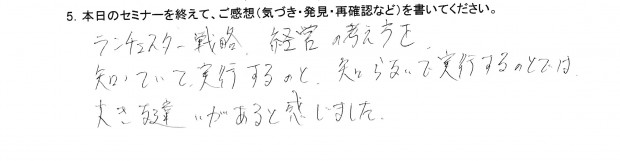 5. 本日のセミナーを終えて、ご感想（気づき・発見・再確認など）を書いてください。
ランチェスター戦略、経営の考え方を、
知っていて、実行するのと、知らないで実行するのとでは、
大きな違いがあると感じました。